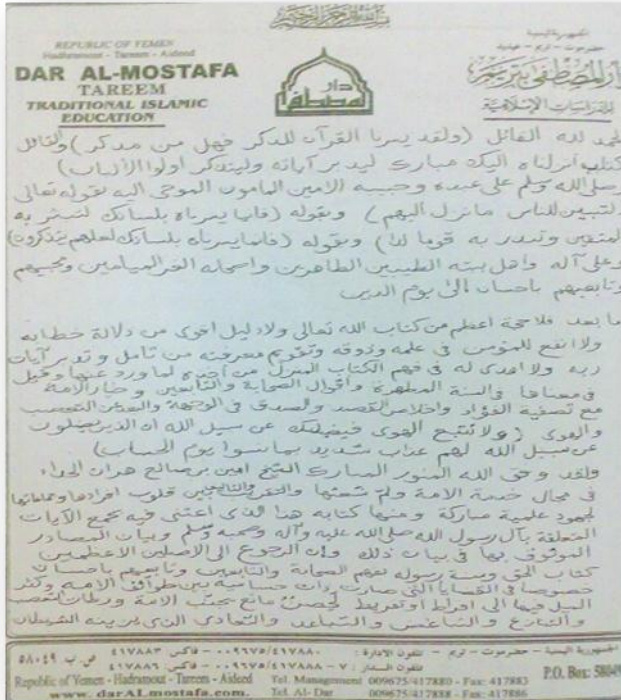 بسم الله الرحمن الرحيم
REPUBLIC OF YEMEN
Hadhramout - Tareem - Aideed
DAR AL-MOSTAFA
TAREEM
TRADITIONAL ISLAMIC
EDUCATION
دار المصطفى
الجمهورية اليمنية
حضرموت - تريم - عيديد
دار المصطفى بتريم
للدراسات الإسلامية
الحمد لله القائل (ولقد يسرنا القرآن للذكر فهل من مدكر) والقائل
كتاب أنزلناه اليك مبارك ليدبروا آياته وليتذكر اولوا الألباب)
وصلى الله وسلم على عبده وحبيبه الامين المامون الموحى اليه بقوله تعالى
لتبين للناس مانزل اليهم) وبقوله (فانما يسرناه بلسانك لتبشر به
المتقين وتنذر به قوما لدا) وبقوله (فانما يسرناه بلسانك لعلهم يتذكرون)
وعلى آله واهل بيته الطيبين الطاهرين واصحابه الغر الميامين ومحبيهم
وتابعيهم باحسان الى يوم الدين
اما بعد فلا حجة اعظم من كتاب الله تعالى ولا دليل اقوى من دلالة خطابه
ولا انفع للمؤمن في علمه وذوقه وتقويم معرفته من تأمل وتدبر آيات
ربه ولا اهدى له في فهم الكتاب المنزل من لما ورد عنها وقيل
في معناها في السنة المطهرة واقوال الصحابة والتابعين وخيار الامة
مع تصفية الفؤاد واخلاص القصد والصدق في الوجهة والبعد عن التعصب
والهوى (ولا تتبع الهوى فيضلك عن سبيل الله ان الذين يضلون
عن سبيل الله لهم عذاب شديد بما نسوا يوم الحساب)
ولقد وفق الله المنور المبارك الشيخ امين بن صالح هران الحداء
في مجال خدمة الامة ولم شعثها والتقريب بين قلوب افرادها وجماعاتها
لجهود علمية مباركة ومنها كتابه هذا الذي اعتنى فيه بجمع الآيات
المتعلقة بآل رسول الله صلى الله عليه وآله وصحبه وسلم وبيان المصادر
الموثوق بها في بيان ذلك وان الرجوع الى الاصلين الاعظمين
كتاب الحق وسنة رسوله بفهم الصحابة والتابعين وتابعيهم باحسان
خصوصا في القضايا التي صارت ذات حساسية بين طوائف الامة وكثر
الميل فيها الى افراط او تفريط لحصن مانع يجنب الامة ورطات التعصب
والتنازع والتباعد والتعادي الذي يزينه الشيطان
الجمهورية اليمنية - حضرموت - تريم - تلفون الادارة : ٤١٧٨٨٠/٠٠٩٦٧٥ - فاكس ٤١٧٨٨٣
تلفون الدار : ٧ - ٤١٧٨٨٨/٠٠٩٦٧٥ - فاكس: ٤١٧٨٨٦
ص.ب. ٥٨٠٤٩
Republic of Yemen - Hadramout - Tareem - Aideed Tel. Management 009675/417880 - Fax: 417883
P.O. Box: 58049
www.darALmostafa.com. Tel. Al-Dar 009675/417888 - Fax: 417886